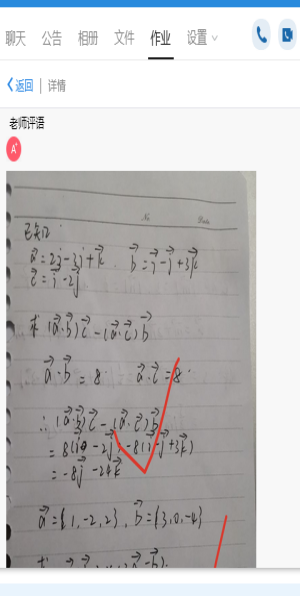 聊天 公告 相册 文件 作业 设置
返回 | 详情
老师评语
A+
No.
Date
已知:
a⃗=2i⃗-3j⃗+k⃗. b⃗=i⃗-j⃗+3k⃗
c⃗=i⃗-2j⃗
求 (a⃗·b⃗)c⃗-(a⃗·c⃗)b⃗
a⃗·b⃗=8 a⃗·c⃗=8
∴(a⃗·b⃗)c⃗-(a⃗·c⃗)b⃗
=8(i⃗-2j⃗)-8(i⃗-j⃗+3k⃗)
=-8j⃗-24k⃗
a⃗={1,-2,2}, b⃗={3,0,-4}